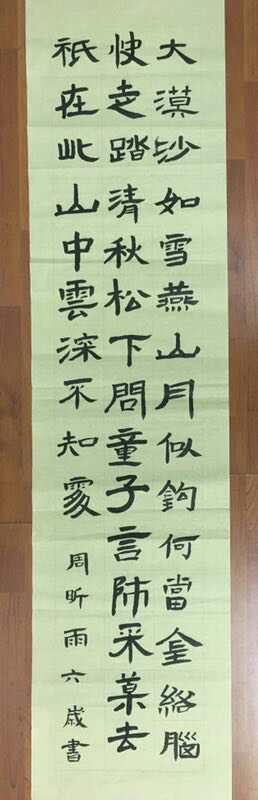 大漠沙如雪燕山月似鈎何當金絡腦
快走踏清秋松下問童子言師采藥去
祇在此山中雲深不知處
周昕雨六歲書